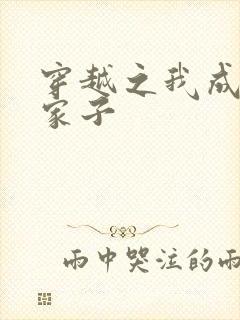 穿越之我成
家子
雨中哭泣的雨